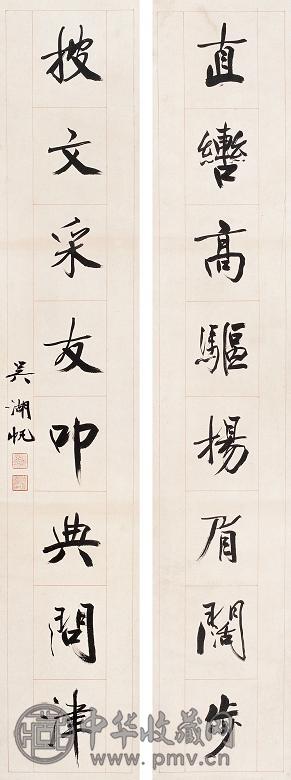 直轡高驅揚眉闊步
披文采友叩典問津
吳湖帆
中华收藏网
www.pmv.cn